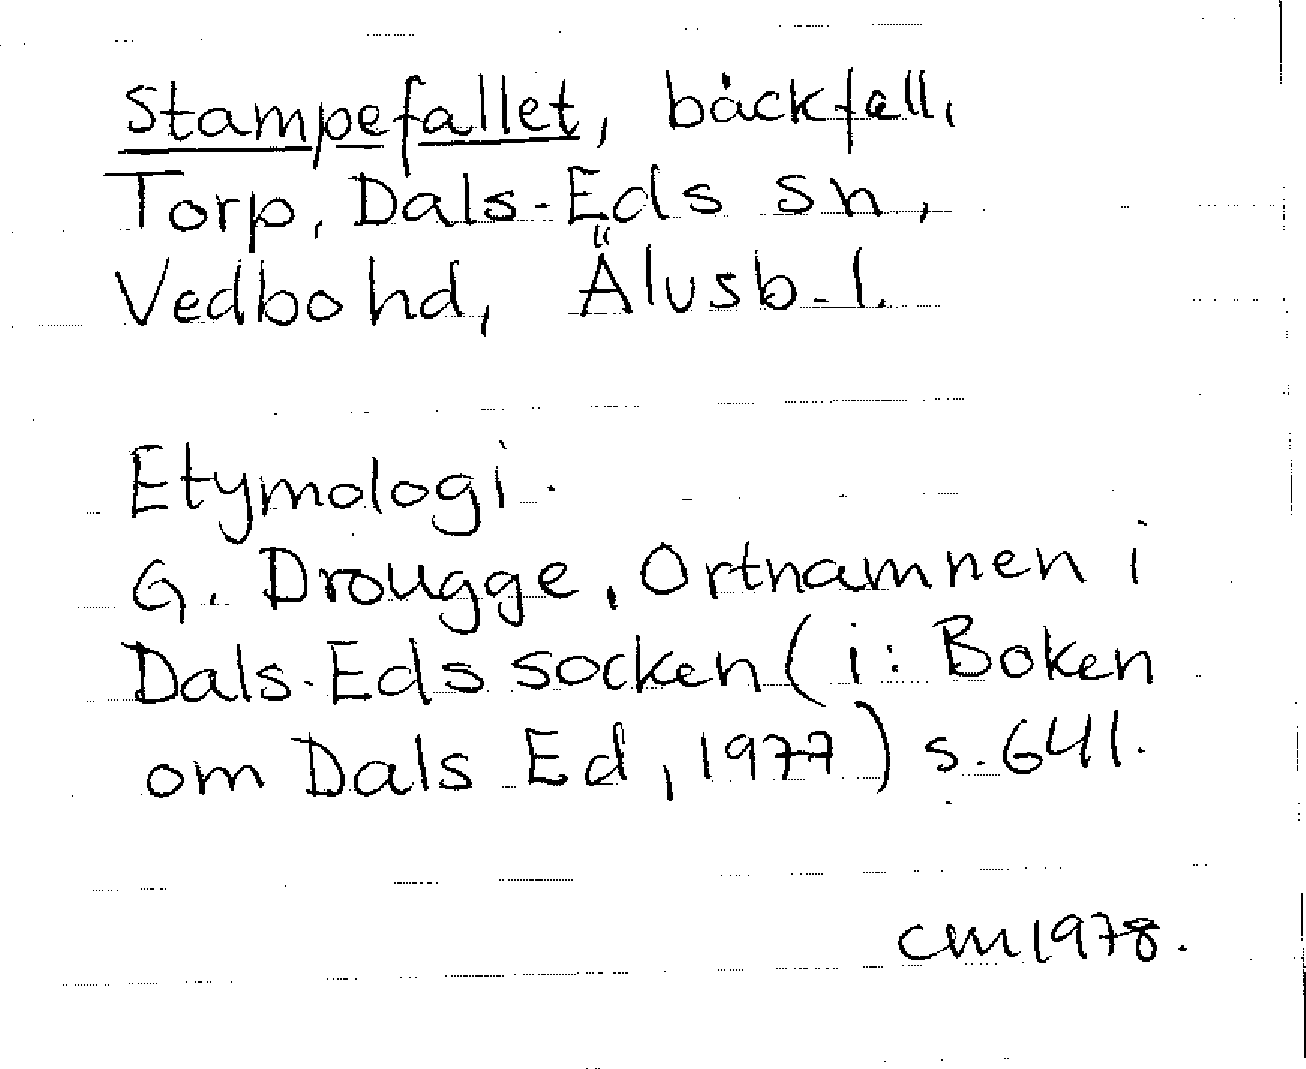 Stampefallet, bäckfall,
Torp, Dals-Eds sn,
Vedbo hd, Älvsb. l.
Etymologi.
G. Drougge, Ortnamnen i
Dals-Eds socken (i: Boken
om Dals Ed, 1977) s. 641.
CM 1978.